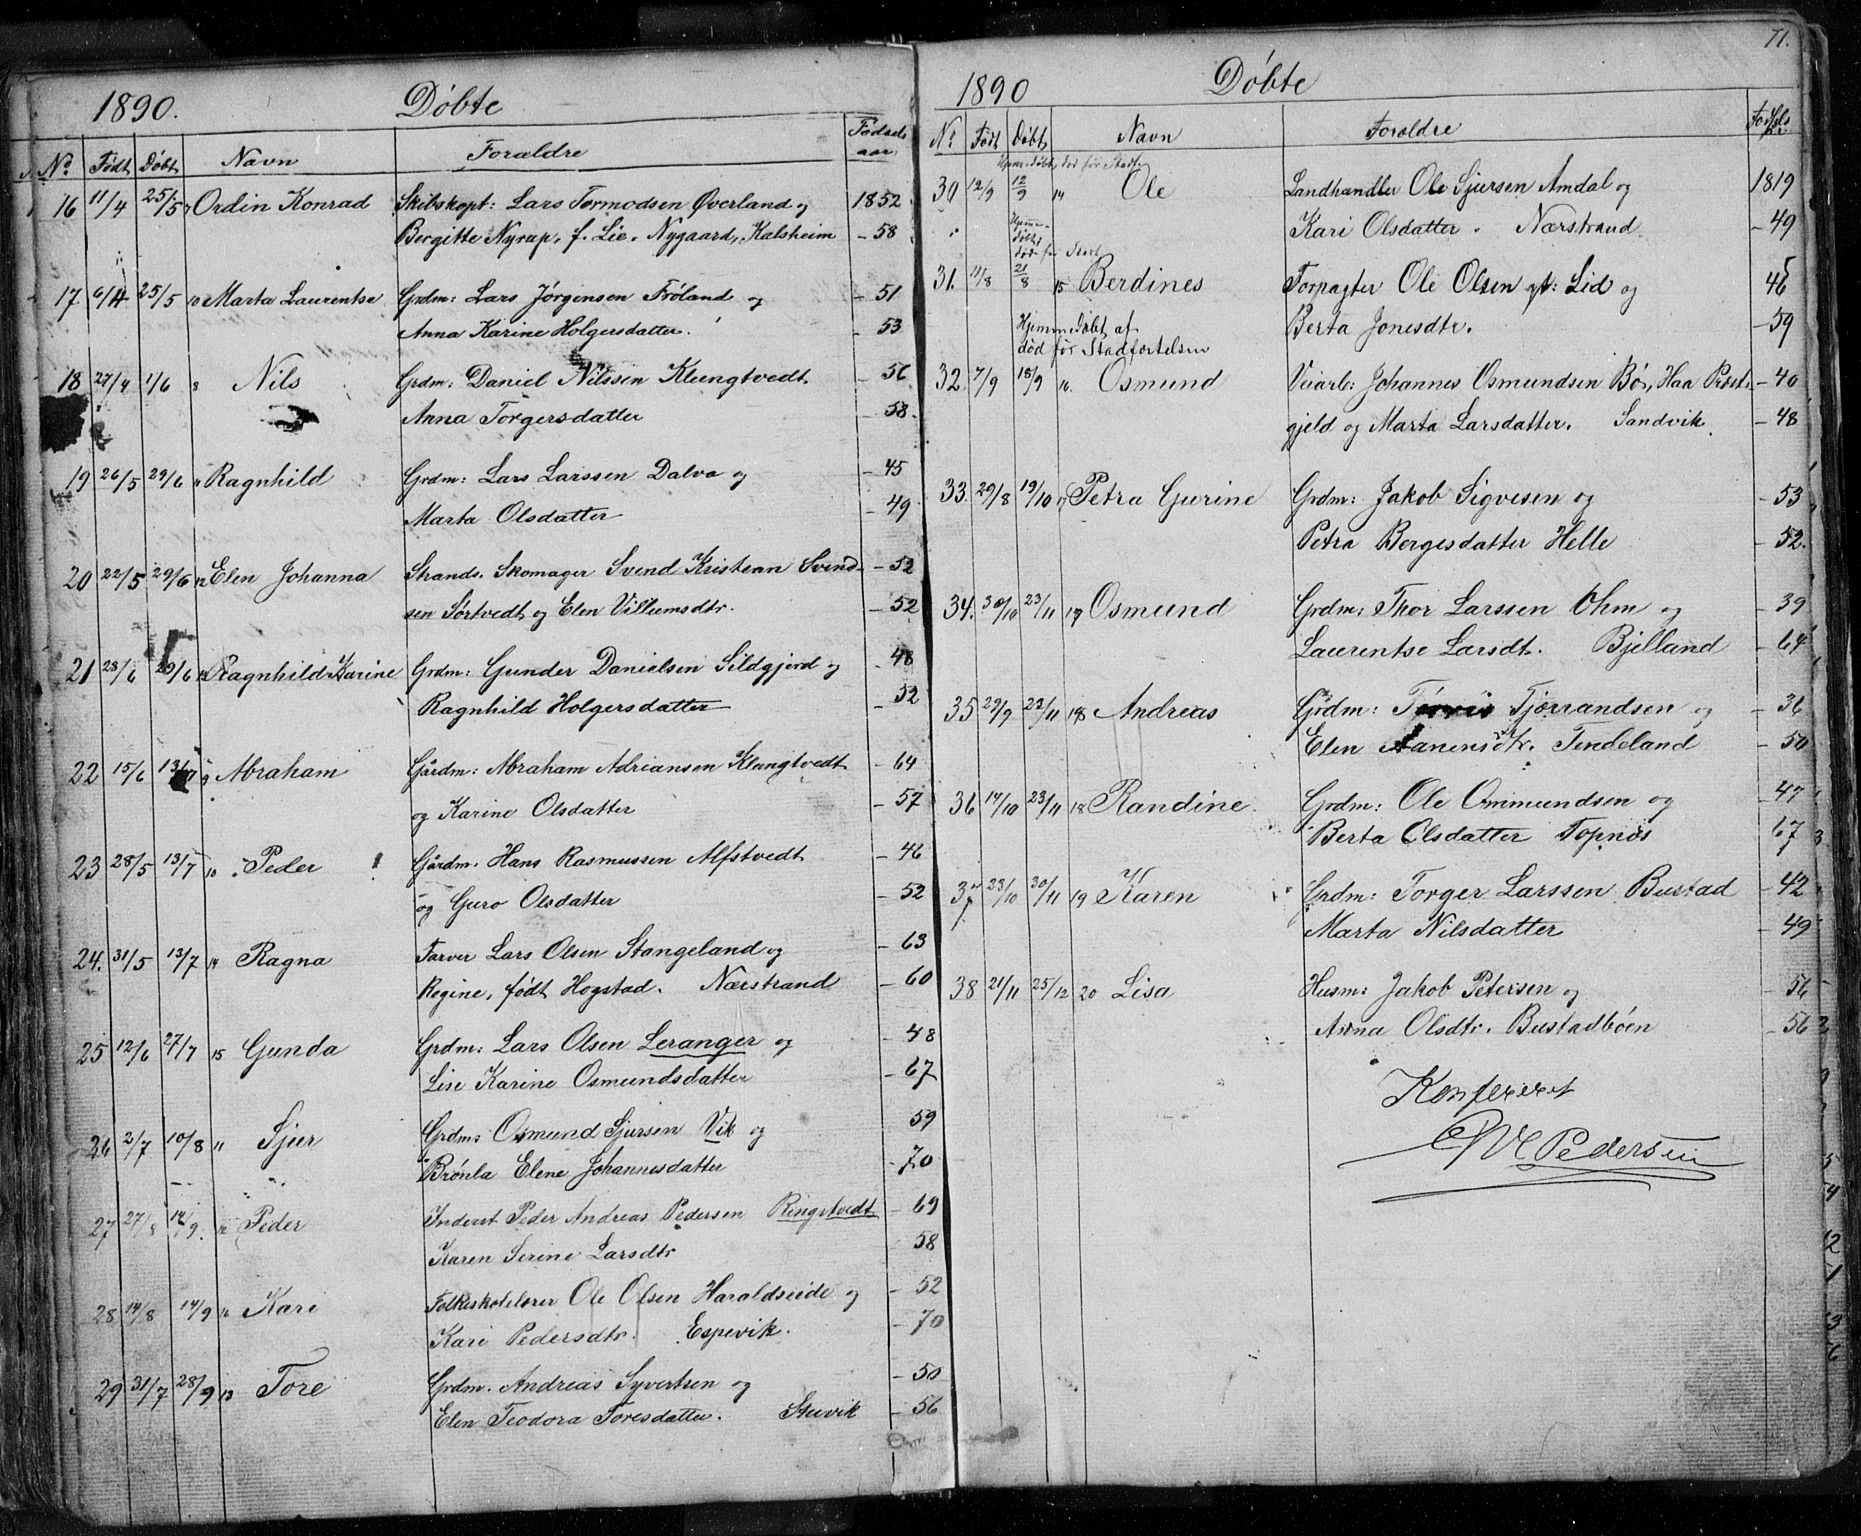 1890. Döbte
No Födt Döbt Navn Forældre Födselsaar
16 11/4 25/5 Ordin Konrad Skibskapt: Lars Tormodsen Øverland og 1852
Bergitte Nyrup, f. Lie. Nygaard, Kalsheim – 58
17 6/4 25/5 10 Marta Laurentse Grdm: Lars Jörgensen Fröland og – 51
Anna Karine Holgersdatter. – 53
18 27/4 1/6 8 Nils Grdm: Daniel Nilssen Klungtvedt – 56
Anna Torgersdatter – 58
19 26/5 29/6 11 Ragnhild Grdm: Lars Larssen Dalva og – 45
Marta Olsdatter – 49
20 22/5 29/6 12 Elen Johanna Strands. Skomager Svend Kristean Svend- – 52
sen Sörtvedt og Elen Villumsdtr. – 52
21 28/6 29/6 Ragnhild Karine Grdm: Gunder Danielsen Sildgjerd og – 48
Ragnhild Holgersdatter – 52
22 15/6 13/7 9 Abraham Gårdm: Abraham Adriansen Klungtvedt – 64
og Karine Olsdatter – 57
23 28/5 13/7 10 Peder Gårdm. Hans Rasmussen Alfstvedt – 46
og Guro Olsdatter – 52
24. 31/5 13/7 14 Ragna Farver Lars Olsen Stangeland og – 63
Regine, födt Hogstad. Nærstrand – 60
25 12/6 27/7 15 Gunda Grdm: Lars Olsen Leranger og – 48
Lise Karine Osmundsdatter – 67
26 2/7 10/8 11 Sjur Grdm: Osmund Sjursen Vik og 59
Brönla Elene Johannesdatter – 70
27 27/8 14/9. 12 Peder Inderst Peder Andreas Pedersen Ringstvedt – 69
Karen Serine Larsdtr 58
28 14/8 14/9 16 Kari Folkeskolelærer Ole Olsen Haraldseide og – 52
Kari Pedersdtr. Espevik. – 70
29 31/7 28/9 13 Tore Grdm. Andreas Syvertsen og – 50
Elen Teodora Toresdatter. Stuvik – 56
71.
1890 Döbte
No Födt Döbt Navn Forældre Födsels
Hjemmedöbt, död för Stadf.
30 12/9 12/9 14 Ole Landhandler Ole Sjursen Amdal og 1819
Kari Olsdatter. Nærstrand – 49
Hjemme-
döbt,
död för Stadf
31. 11/8 21/8 15 Berdines Forpagter Ole Olsen yt: Lid og 46
Berta Jonesdtr. – 59
Hjemmedöbt af
död för Stadfæstelsen
32 7/9 18/9 16. Osmund Veiarb: Johannes Osmundsen Bö, Haa Præst- – 40
gjeld og Marta Larsdatter. Sandvik. – 48
33. 29/8 19/10 Petra Gurine Grdm: Jakob Sigvesen og – 53
Petra Bergesdatter Helle – 52.
34. 30/10 23/11 17 Osmund Grdm: Thor Larssen Ohm og – 39
Laurentse Larsdt. Bjelland – 64
35 29/9 23/11 18 Andreas Grdm: Tjærrandsen og – 36
Elen Aanensdtr. Tendeland – 50
36 14/10 23/11 18 Randine Grdm: Ole Ommundsen og – 47
Berta Olsdatter Topnæs – 67
37 23/10 30/11 19 Karen Grdm: Torger Larssen Bustad – 42
Marta Nilsdatter – 49
38 21/11 25/12 20 Lisa Husm: Jakob Petersen og – 56
Anna Olsdtr. Bustadböen – 56
Konfereret
Pedersen